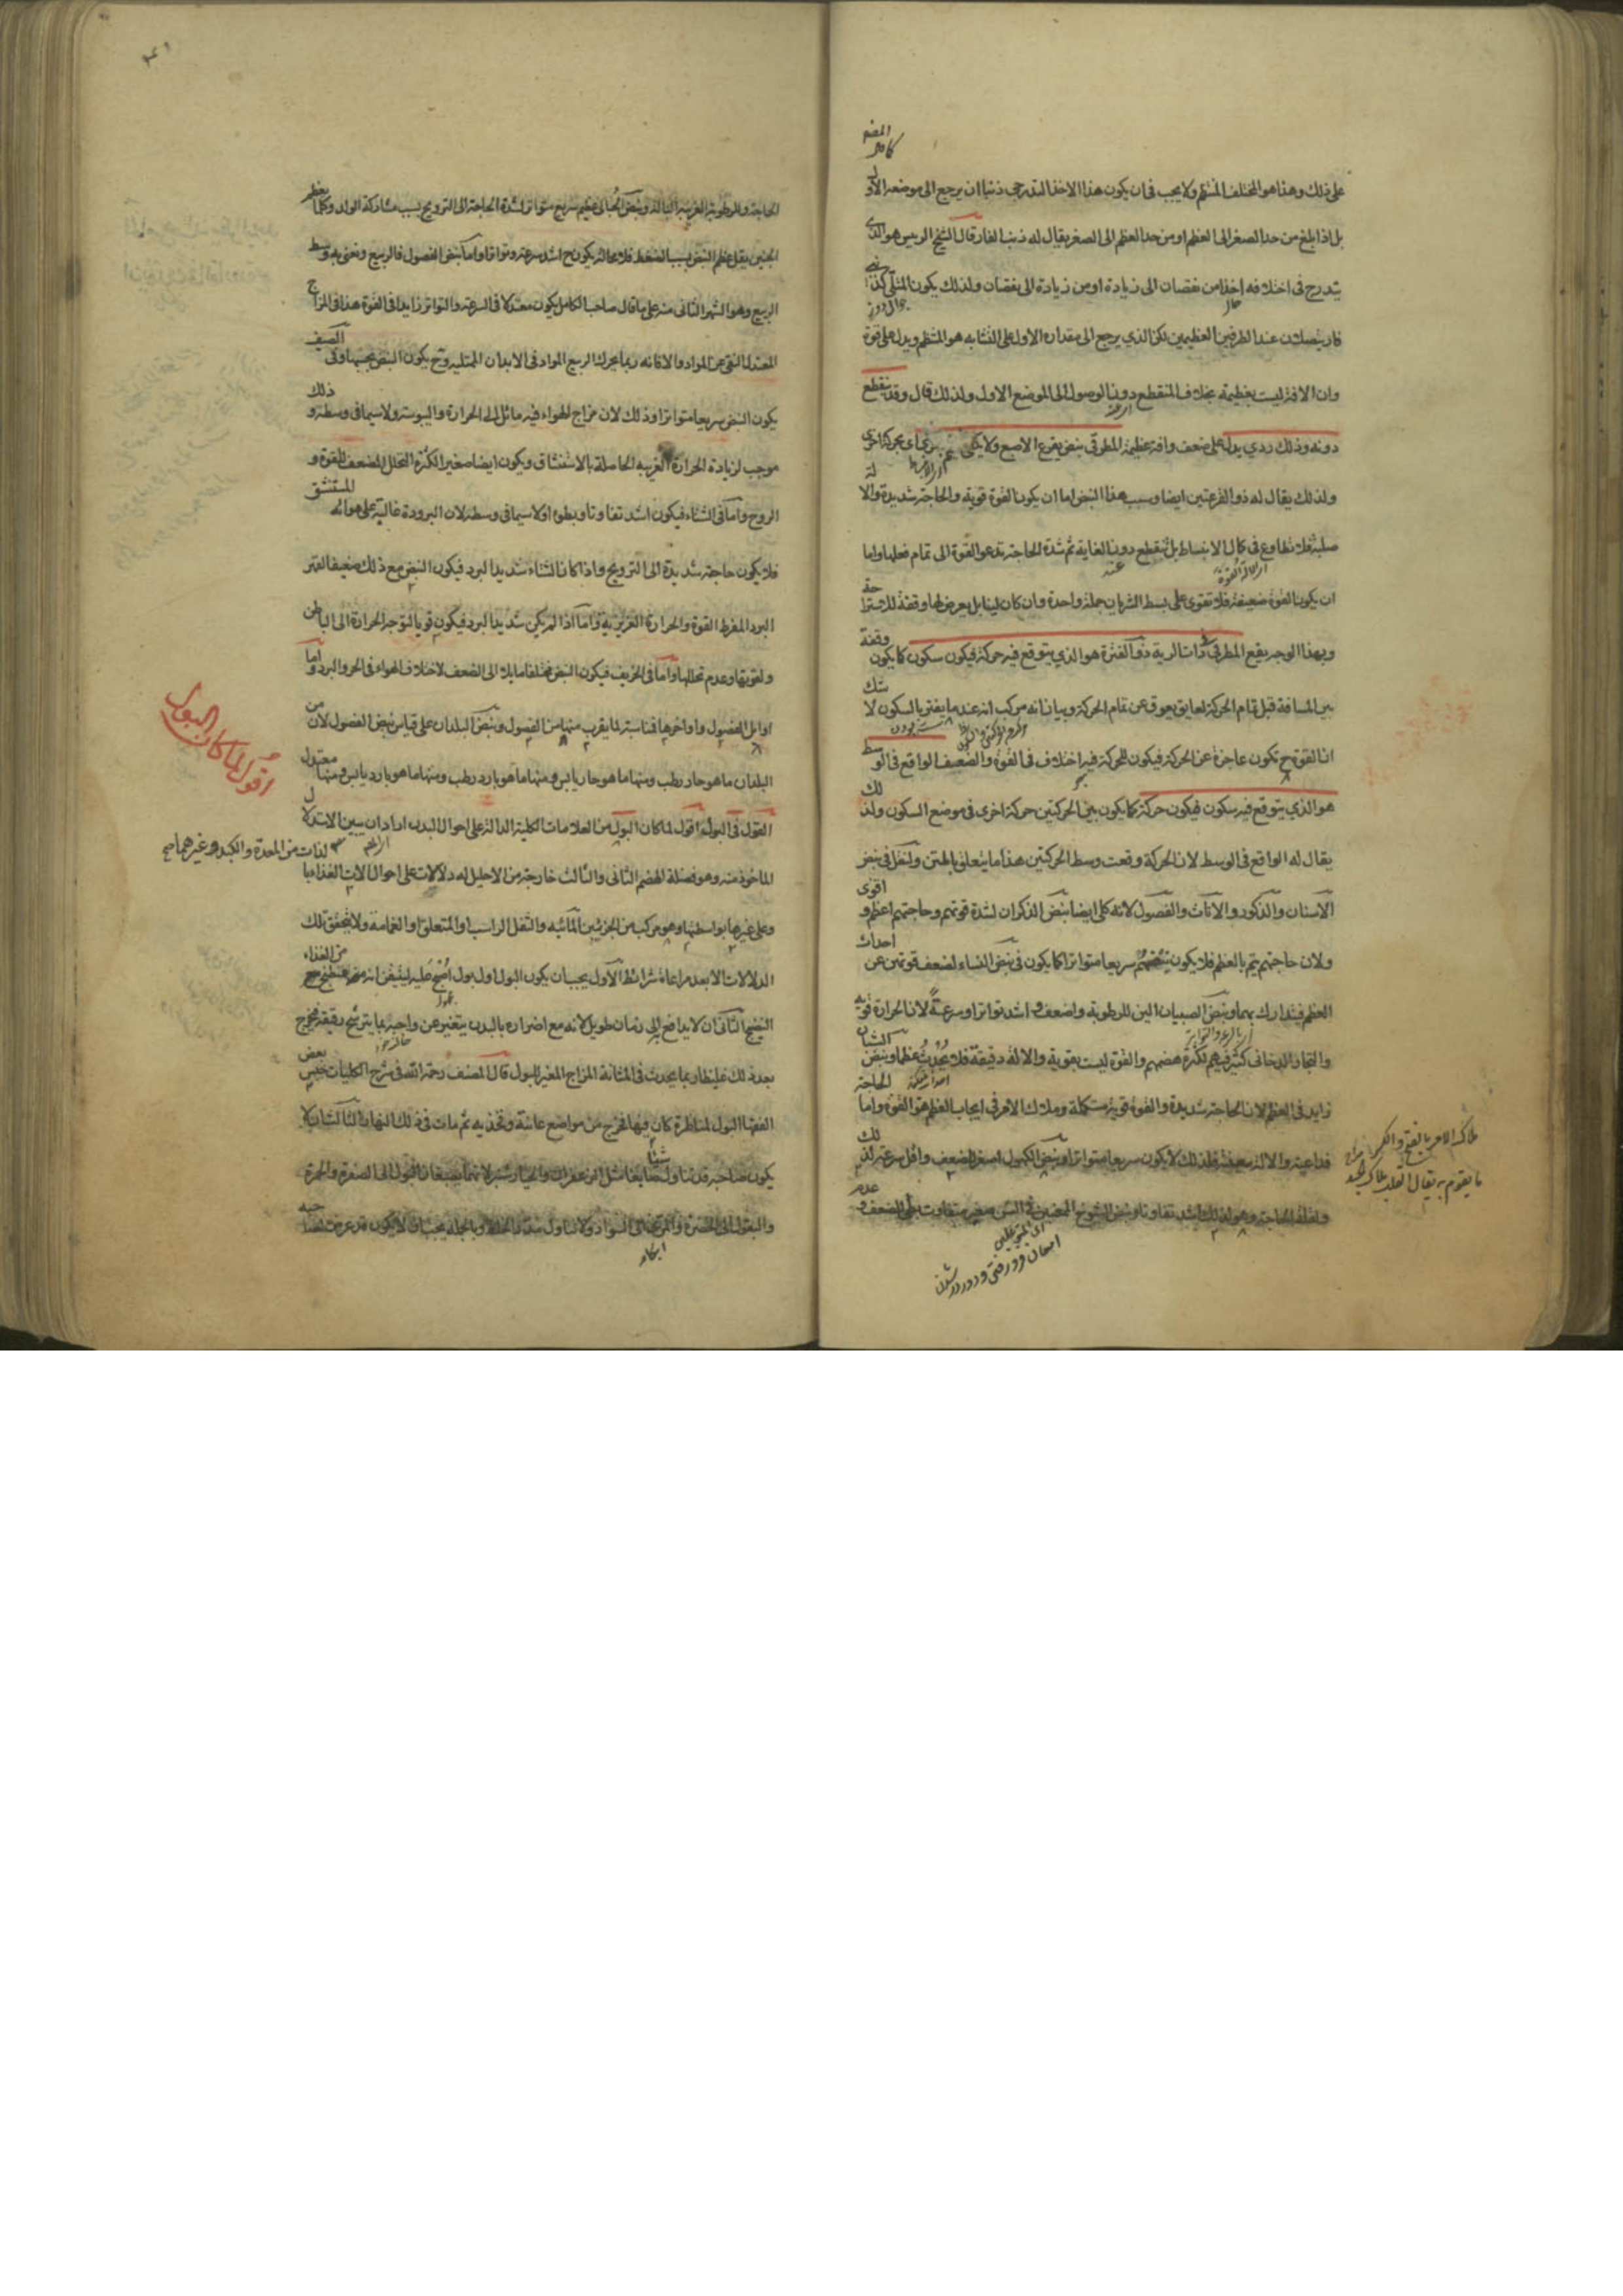 على ذلك وهذا هو المختلف المنتظم ولا يجب في ان يكون هذا الاخذ التدرجى ذنبا ان يرجع الى موضعه الاول
بل اذا بلغ من حد الصغر الى العظم او من حد العظم الى الصغر يقال له ذنب الفار قال الشيخ الرييس هو الذى
يتدرج فى اختلافه اخذا من نقصان الى زيادة او من زيادة الى نقصان ولذلك يكون المثلى كذنبى
فار يتصلان عند الطرفين العظيمين لكن الذي يرجع الى مقداره الاول على التشابه هو المنتظم ويدل على قوة
وان الافة ليست بعظيمة بخلاف المنقطع دون الوصول الى الموضع الاول ولذلك قال وقد ينقطع
دونه وذلك ردي يدل على ضعف وافة عظيمة المطرقى نبض يقرع الاصبع ولا يكتفى اى بحركة اخرى
ولذلك يقال له ذو القرعتين ايضا وسبب هذا النبض اما ان يكون القوة قوية والحاجة شديدة والالة
صلبة فلا تطاوع فى كمال الانبساط بل تنقطع دون الغاية ثم شدة الحاجة تدعو القوة الى تمام فعلها واما
ان يكون القوة ضعيفة فلا تقوى على بسط الشريان جملة واحدة وان كان لينا بل يعرض لها وقفة للاستراحة
وبهذا الوجه يقع المطرقى فى ذات الرية ذو الفترة هو الذي يتوقع فيه حركة فيكون سكون كما يكون وقفة
بين المسافة قبل تمام الحركة لعايق يعوق عن تمام الحركة وبيانه انه مركب انه عند ما يفتر بالسكون لا شك
ان القوة ح تكون عاجزة عن الحركة فيكون للحركة فيه اختلاف فى القوة والضعف الواقع فى الوسط
هو الذي يتوقع فيه سكون فيكون حركة كما يكون بين الحركتين حركة اخرى فى موضع السكون ولذلك
يقال له الواقع فى الوسط لان الحركة وقعت وسط الحركتين هذا ما يتعلق بالمتن ولنقل فى نبض
الاسنان والذكور والاناث والفصول لانه كلى ايضا نبض الذكران لشدة قوتهم وحاجتهم اعظم واقوى
ولان حاجتهم يتم بالعظم فلا يكون نبضهم سريعا متواترا كما يكون فى نبض النساء لضعف قوتهن عن احداث
العظم فيتدارك بهما ونبض الصبيان الين للرطوبة واضعف واشد تواترا وسرعة لان الحرارة قوية
والبخار الدخانى كثير فيهم لكثرة هضمهم والقوة ليست بقوية والالة دقيقة فلا تحدث عظما ونبض الشبان
زايد فى العظم لان الحاجة شديدة والقوة قوية مستكملة وملاك الامر فى ايجاب العظم هو القوة واما الحاجة
فداعية والالة معينة فلذلك لا يكون سريعا متواترا ونبض الكهول اصغر للضعف واقل سرعة لذلك
ولقلة الحاجة وهو لذلك اشد تفاوتا ونبض الشيوخ الممعنين فى السن صغير متفاوت بطى للضعف وعدم
ملاك الامر بالفتح والكسر
ما يقوم به يقال القلب ملاك الجسد
الحاجة والرطوبة الغريبة البالة ونبض الحبالى عظيم سريع متواتر لشدة الحاجة الى الترويح بسبب مشاركة الولد وكلما يعظم
الجنين يقل عظم النبض بسبب الضغط فلا محالة يكون ح اشد سرعة وتواترا واما نبض الفصول فالربيع ونعنى به وسط
الربيع وهو الشهر الثانى منه على ما قال صاحب الكامل يكون معتدلا فى السرعة والتواتر زايدا فى القوة هذا فى المزاج
المعتدل النقى عن المواد والا فانه ربما يحرك الربيع المواد فى الابدان الممتلية وح يكون النبض بحسبها وفى الصيف
يكون النبض سريعا متواترا وذلك لان مزاج الهواء فيه مائل الى الحرارة واليبوسة ولا سيما فى وسطه وذلك
موجب لزيادة الحرارة الغريبة الحاصلة بالاستنشاق ويكون ايضا صغيرا لكثرة التحلل المضعف للقوة و
الروح واما فى الشتاء فيكون اشد تفاوتا وبطوءا ولا سيما فى وسطه لان البرودة غالبة على هوائه المستنشق
فلا يكون حاجة شديدة الى الترويح واذا كان الشتاء شديد البرد فيكون النبض مع ذلك ضعيفا لقهر
البرد المفرط القوة والحرارة الغريزية واما اذا لم يكن شديد البرد فيكون قويا لتوجه الحرارة الى الباطن
ولقوتها وعدم تحللها واما فى الخريف فيكون النبض مختلفا مايلا الى الضعف لاختلاف الهواء فى الحر والبرد واما
اوايل الفصول واواخرها فمناسبة لما يقرب منها من الفصول ونبض البلدان على قياس نبض الفصول لان من
البلدان ما هو حار رطب ومنها ما هو حار يابس ومنها ما هو بارد رطب ومنها ما هو بارد يابس ومنها معتدل
القول فى البول اقول لما كان البول من العلامات الكلية الدالة على احوال البدن اراد ان يبين الاستدلال
الماخوذ منه وهو فضلة الهضم الثانى والثالث خارجة من الاحليل له دلالات على احوال الات الغذاء بالذات من المعدة والكبد وغيرهما صح
وعلى غيرها بواسطتها وهو مركب من الجزئين المائيه والثفل الراسب او المتعلق او الغمامة ولا يتحقق تلك
الدلالات الا بعد مراعاة شرائط الاول يجب ان يكون البول اول بول اصبح عليه ليتيقن انه من الغذاء
النضج الثانى ان لا يدافع الى زمان طويل لانه مع اضراره بالبدن يتغير عن واجبه بما يترشح رقيقه فيخرج
بعد ذلك غليظا وبما يحدث فى المثانة المزاج المغير للبول قال المصنف رحمة الله فى شرح الكليات حبس بعض
الفقها البول لمناظرة كان فيها فخرج من مواضع عانته وفخذيه ثم مات فى ذلك النهار الثالث ان لا
يكون صاحبه قد تناول شيئا صابغا مثل الزعفران والخيار شنبر لانهما يصبغان البول الى الصفرة والحمرة
والبقول الى الخضرة والمرى الى السواد
اقول لما كان البول